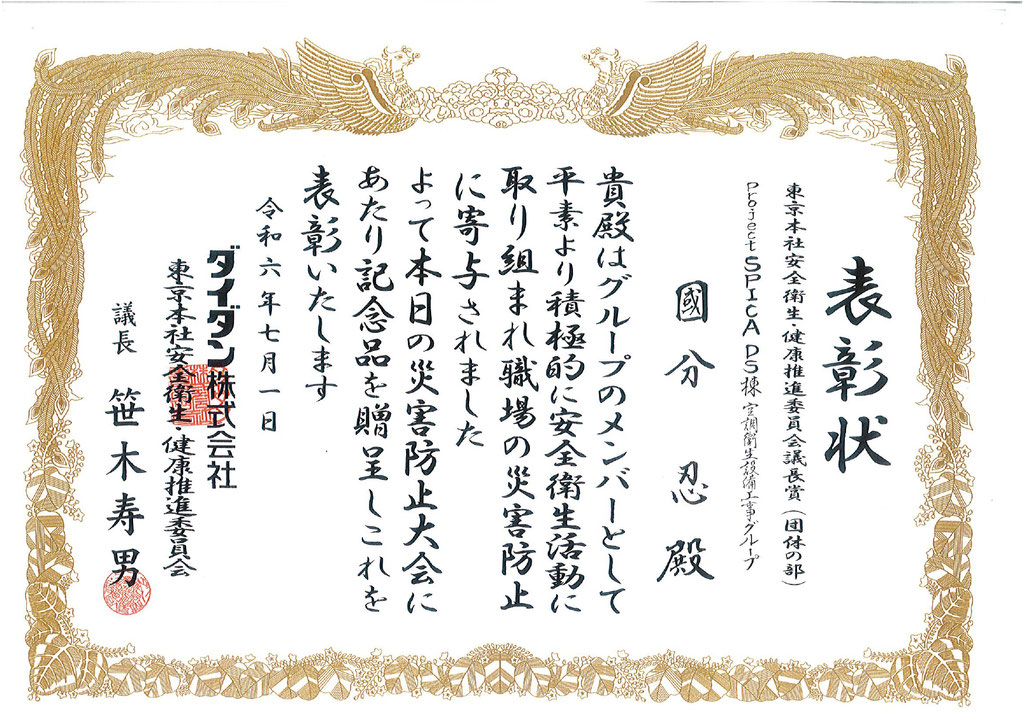 表彰状
東京本社安全衛生・健康推進委員会議長賞(団体の部)
Project SPICA DS棟 空調衛生設備工事グループ
國分 忍殿
貴殿はグループのメンバーとして
平素より積極的に安全衛生活動に
取り組まれ職場の災害防止
に寄与されました
よって本日の災害防止大会に
あたり記念品を贈呈しこれを
表彰いたします
令和六年七月一日
ダイダン株式会社
東京本社安全衛生・健康推進委員会
議長 笹木寿男